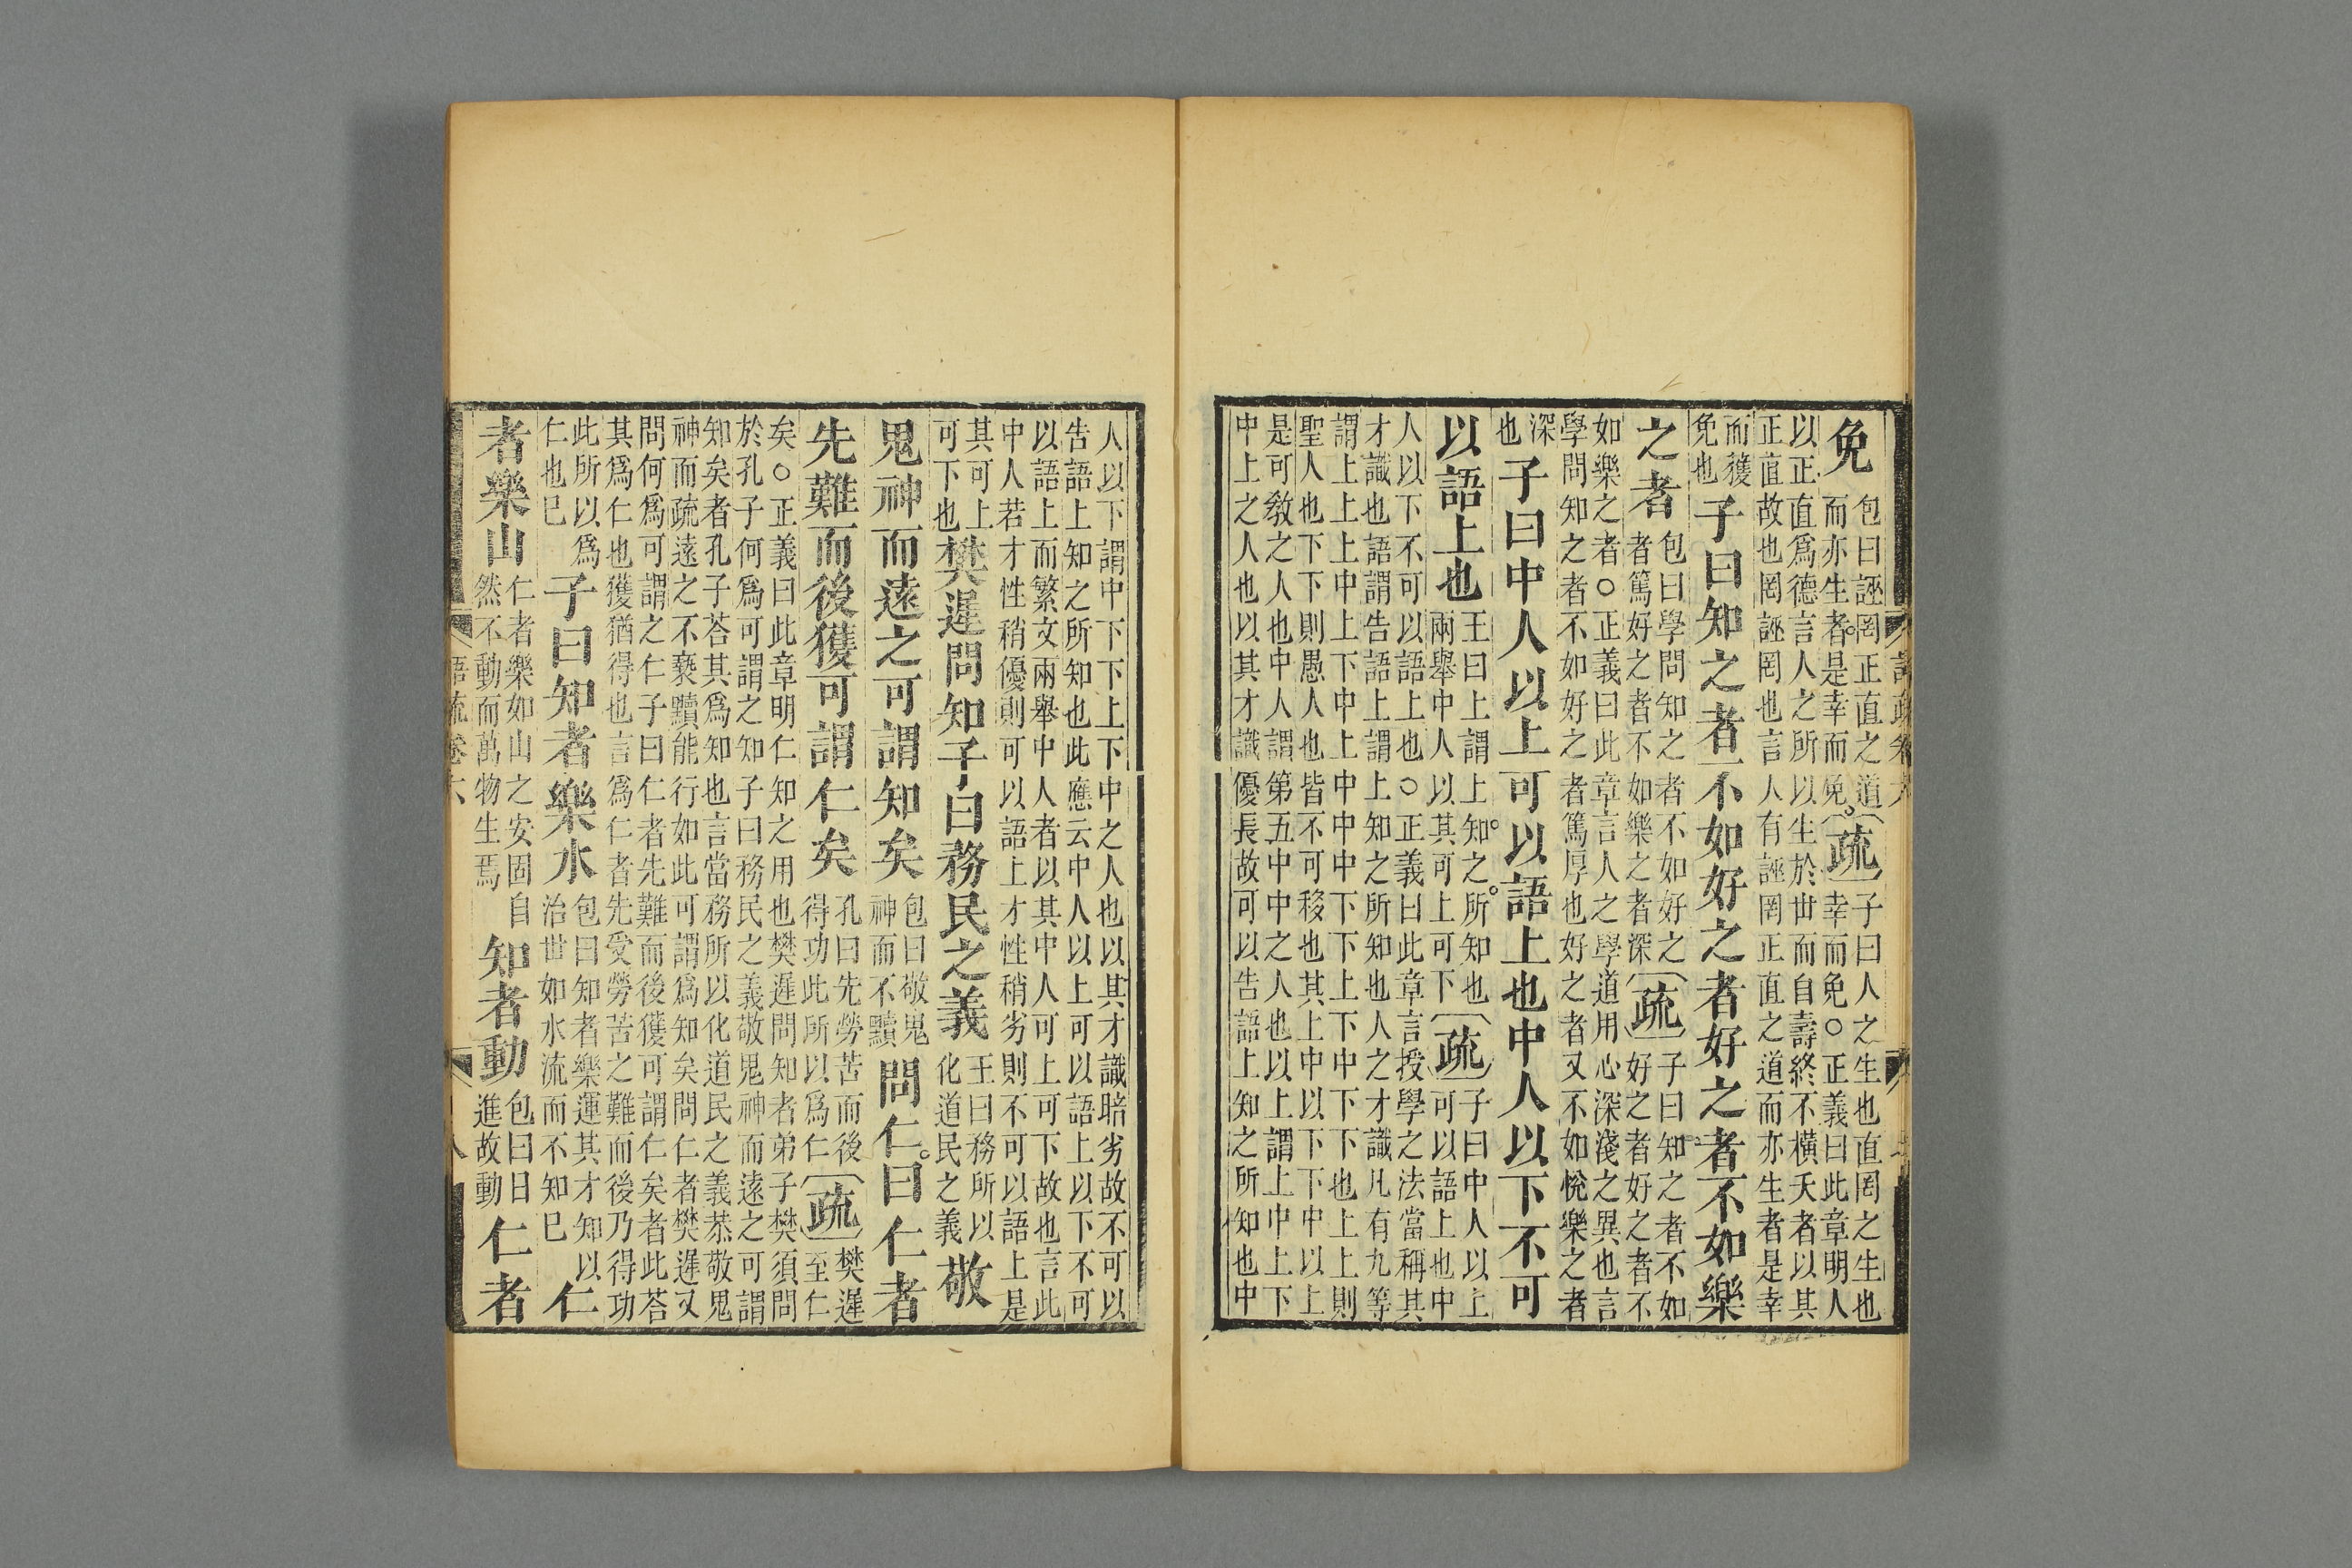 免
包曰誣罔正直之道
而亦生者是幸而免
疏
子曰人之生也直罔之生也
幸而免○正義曰此章明人
以正直爲德言人之所以生於世而自壽終不橫夭者以其
正直故也罔誣罔也言人有誣罔正直之道而亦生者是幸
而獲
免也
子曰知之者不如好之者好之者不如樂
之者
包曰學問知之者不如好之
者篤好之者不如樂之者深
疏
子曰知之者不如
好之者好之者不
如樂之者○正義曰此章言人之學道用心深淺之異也言
學問知之者不如好之者篤厚也好之者又不如悅樂之者
深
也
子曰中人以上可以語上也中人以下不可
以語上也
王曰上謂上知之所知也
兩舉中人以其可上可下
疏
子曰中人以上
可以語上也中
人以下不可以語上也○正義曰此章言授學之法當稱其
才識也語謂告語上謂上知之所知也人之才識凡有九等
謂上上上中上下中上中中中下下上下中下下也上上則
聖人也下下則愚人也皆不可移也其上中以下下中以上
是可敎之人也中人謂第五中中之人也以上謂上中上下
中上之人也以其才識優長故可以告語上知之所知也中
人以下謂中下下上下中之人也以其才識暗劣故不可以
告語上知之所知也此應云中人以上可以語上以下不可
以語上而繁文兩舉中人者以其中人可上可下故也言此
中人若才性稍優則可以語上才性稍劣則不可以語上是
其可上
可下也
樊遲問知子曰務民之義
王曰務所以
化道民之義
敬
鬼神而遠之可謂知矣
包曰敬鬼
神而不黷
問仁曰仁者
先難而後獲可謂仁矣
孔曰先勞苦而後
得功此所以爲仁
疏
樊遲
至仁
矣○正義曰此章明仁知之用也樊遲問知者弟子樊須問
於孔子何爲可謂之知子曰務民之義敬鬼神而遠之可謂
知矣者孔子荅其爲知也言當務所以化道民之義恭敬鬼
神而疏遠之不褻黷能行如此可謂爲知矣問仁者樊遲又
問何爲可謂之仁子曰仁者先難而後獲可謂仁矣者此荅
其爲仁也獲猶得也言爲仁者先受勞苦之難而後乃得功
此所以爲
仁也已
子曰知者樂水
包曰知者樂運其才知以
治世如水流而不知已
仁
者樂山
仁者樂如山之安固自
然不動而萬物生焉
知者動
包曰日
進故動
仁者